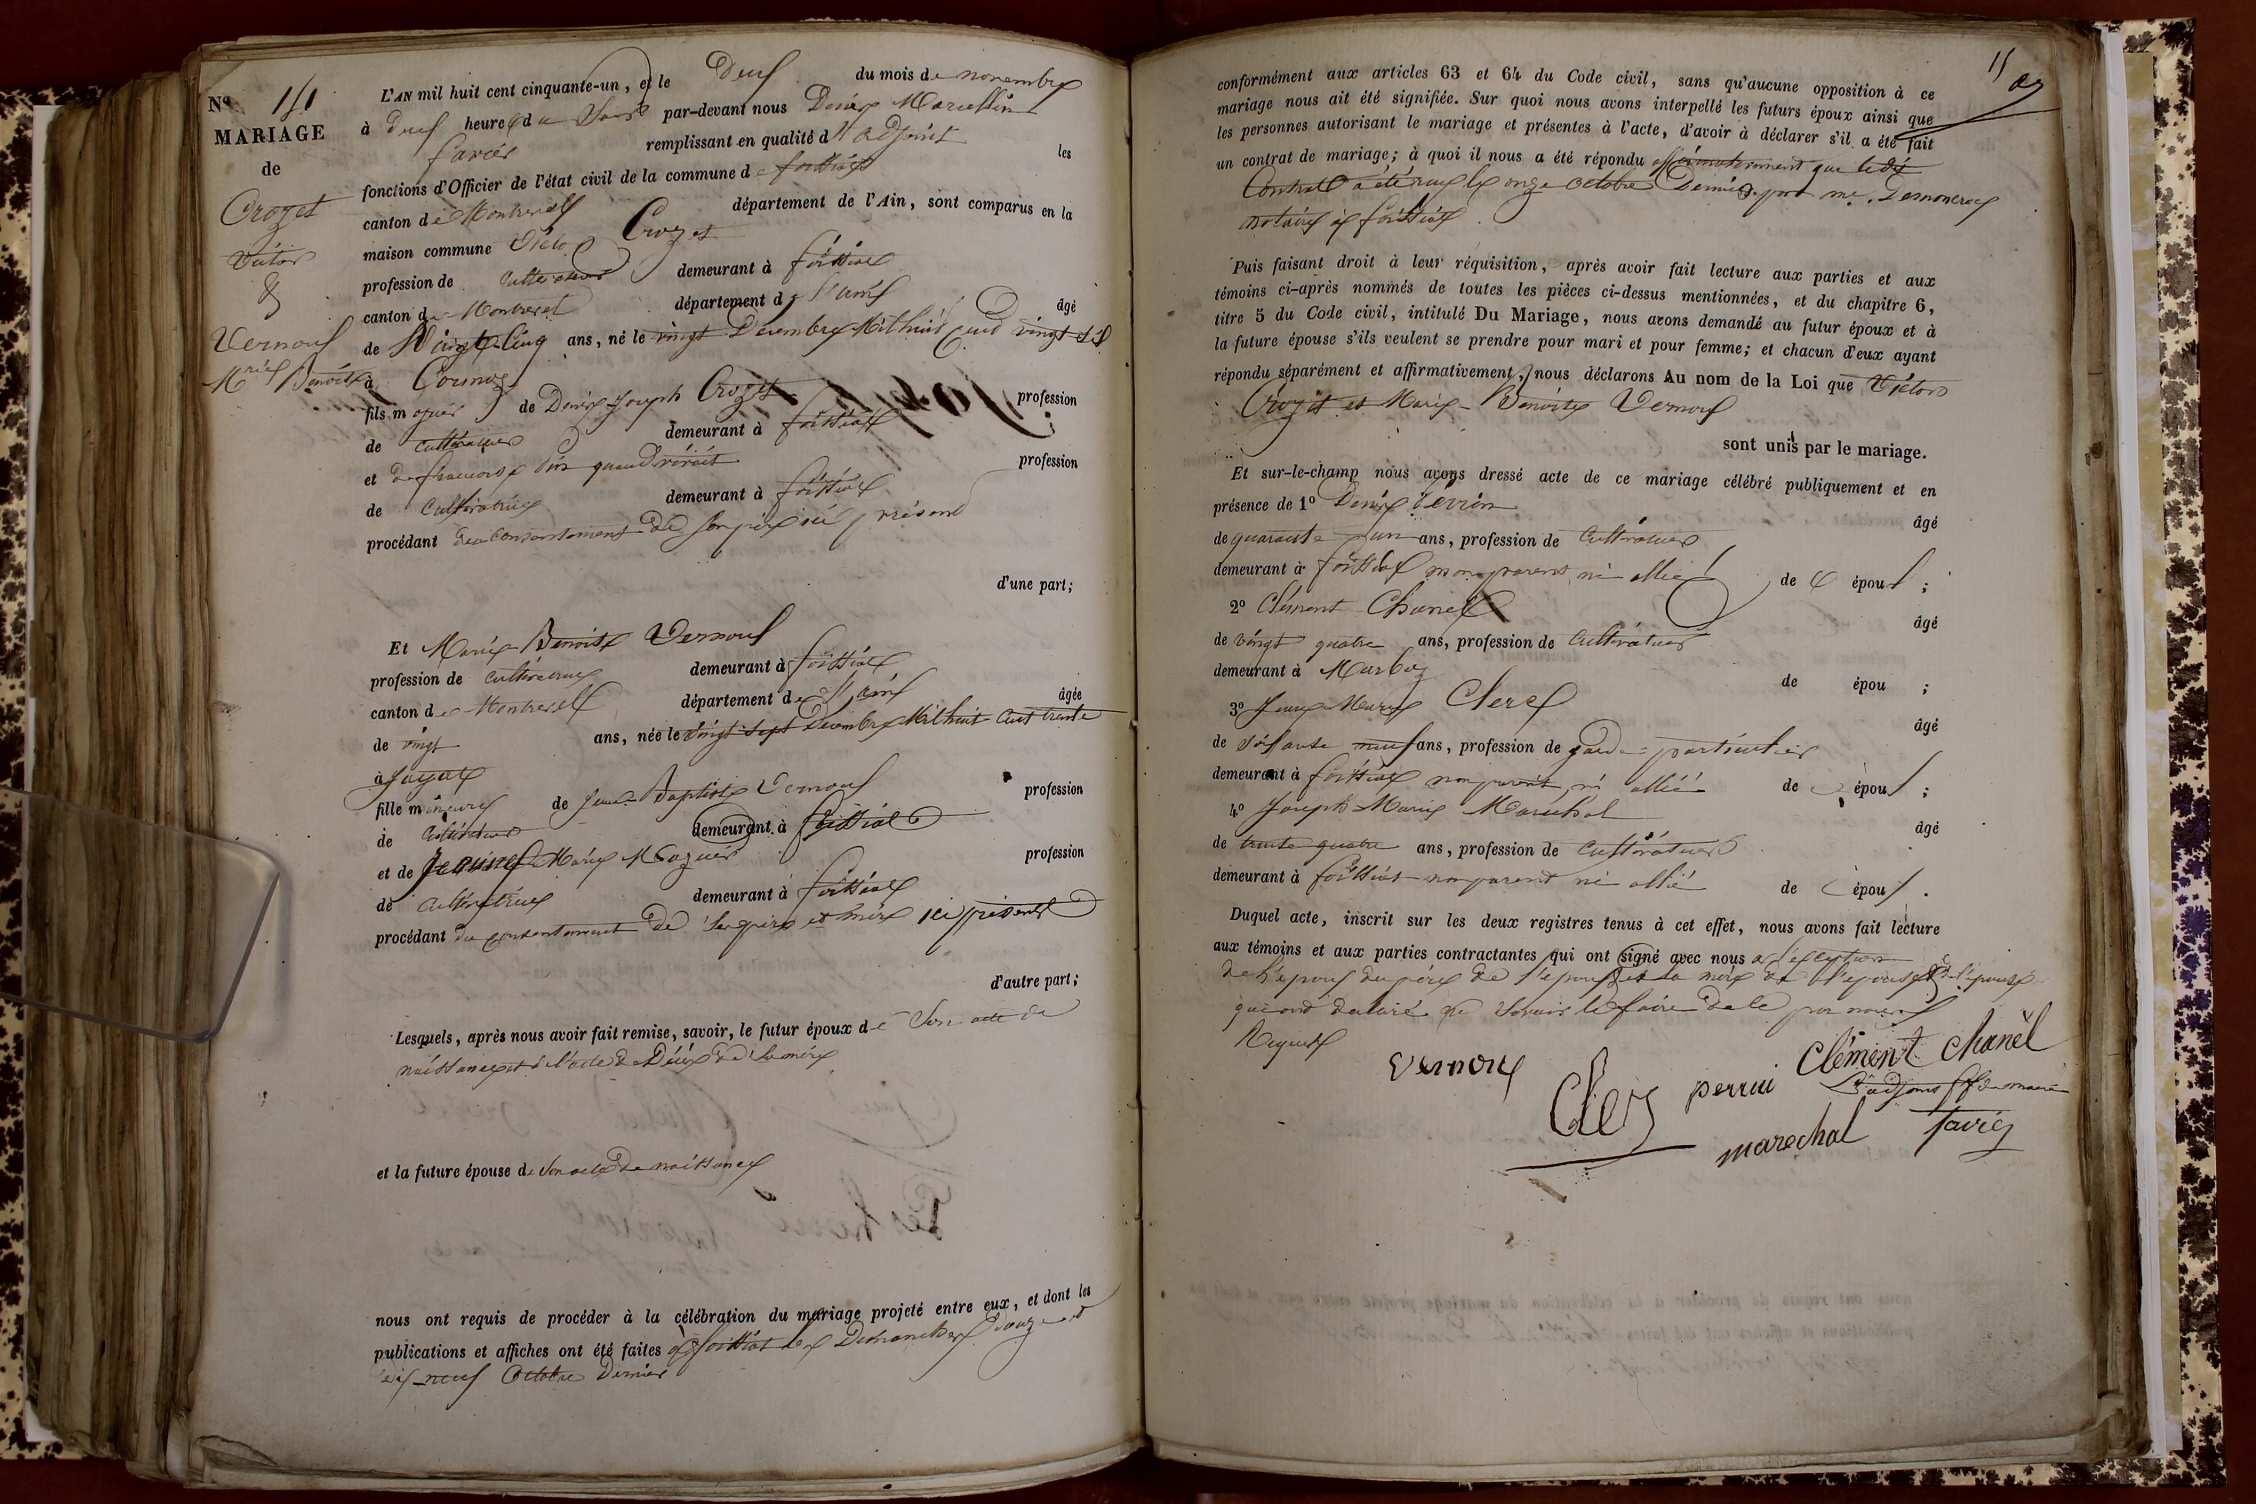 Nº 151
MARIAGE
de
Crozet
Victor
&
Vernoux
Mrie Benoite
L'AN mil huit cent cinquante-un, et le Deux du mois de novembre
à Deux heures du Soir par-devant nous Denis Marcellin
favier remplissant en qualité d'adjoint les
fonctions d'Officier de l'état civil de la commune de foissiat
canton de Montrevel département de l'Ain, sont comparus en la
maison commune Victor Crozet
profession de Cultivateur demeurant à foissiat
canton de Montrevel département de l'ain âgé
de Vingt Cinq ans, né le vingt Décembre Mil huit Cent vingt six
à Cormoz
fils majeur de Denis Joseph Crozet profession
de cultivateur demeurant à foissiat
et de francoise vivante quand vivait profession
de Cultivatrice demeurant à foissiat
procédant du consentement de son père ici présent
d'une part;
Et Marie Benoite Vernoux
profession de cultivatrice demeurant à foissiat
canton de Montrevel département de l'ain âgée
de vingt ans, née le vingt sept Décembre Mil huit Cent trente
à Jayat
fille mineure de Jean-Baptiste Vernoux profession
de Cultivateur demeurant à foissiat
et de Jeanne Marie profession
de Cultivatrice demeurant à foissiat
procédant du consentement de ses père et mère ici présents
d'autre part;
Lesquels, après nous avoir fait remise, savoir, le futur époux de Son acte de
naissance et de l'acte de Décès de sa mère
et la future épouse de Son acte de naissance
nous ont requis de procéder à la célébration du mariage projeté entre eux, et dont les
publications et affiches ont été faites à foissiat les Dimanches Douze et
dix-neuf Octobre Dernier
conformément aux articles 63 et 64 du Code civil, sans qu'aucune opposition à ce
mariage nous ait été signifiée. Sur quoi nous avons interpellé les futurs époux ainsi que
les personnes autorisant le mariage et présentes à l'acte, d'avoir à déclarer s'il a été fait
un contrat de mariage; à quoi il nous a été répondu affirmativement que ledit
Contrat a été reçu le onze octobre Dernier par me.
notaire à foissiat
Puis faisant droit à leur réquisition, après avoir fait lecture aux parties et aux
témoins ci-après nommés de toutes les pièces ci-dessus mentionnées, et du chapitre 6,
titre 5 du Code civil, intitulé Du Mariage, nous avons demandé au futur époux et à
la future épouse s'ils veulent se prendre pour mari et pour femme; et chacun d'eux ayant
répondu séparément et affirmativement, nous déclarons Au nom de la Loi que Victor
Crozet et Marie-Benoite Vernoux
sont unis par le mariage.
Et sur-le-champ nous avons dressé acte de ce mariage célébré publiquement et en
présence de 1º Denis âgé
de quarante un ans, profession de Cultivateur
demeurant à foissiat non parent ni allié de époux;
2º Clément Chanel âgé
de vingt quatre ans, profession de Cultivateur
demeurant à Marboz de épou;
3º Jean Marie Clerc âgé
de soixante neuf ans, profession de garde-particulier
demeurant à foissiat non parent ni allié de époux;
4º Joseph Marie Marechal âgé
de trente quatre ans, profession de Cultivateur
demeurant à foissiat non parent ni allié de époux.
Duquel acte, inscrit sur les deux registres tenus à cet effet, nous avons fait lecture
aux témoins et aux parties contractantes qui ont signé avec nous à l'exception
de l'époux du père de l'époux et la mère de l'épouse et de l'épouse
qui ont déclaré ne savoir le faire de ce par nous
Requis
Vernoux
Clerc
perrin
Clément Chanel
L'adjoint ff de maire
marechal
favier